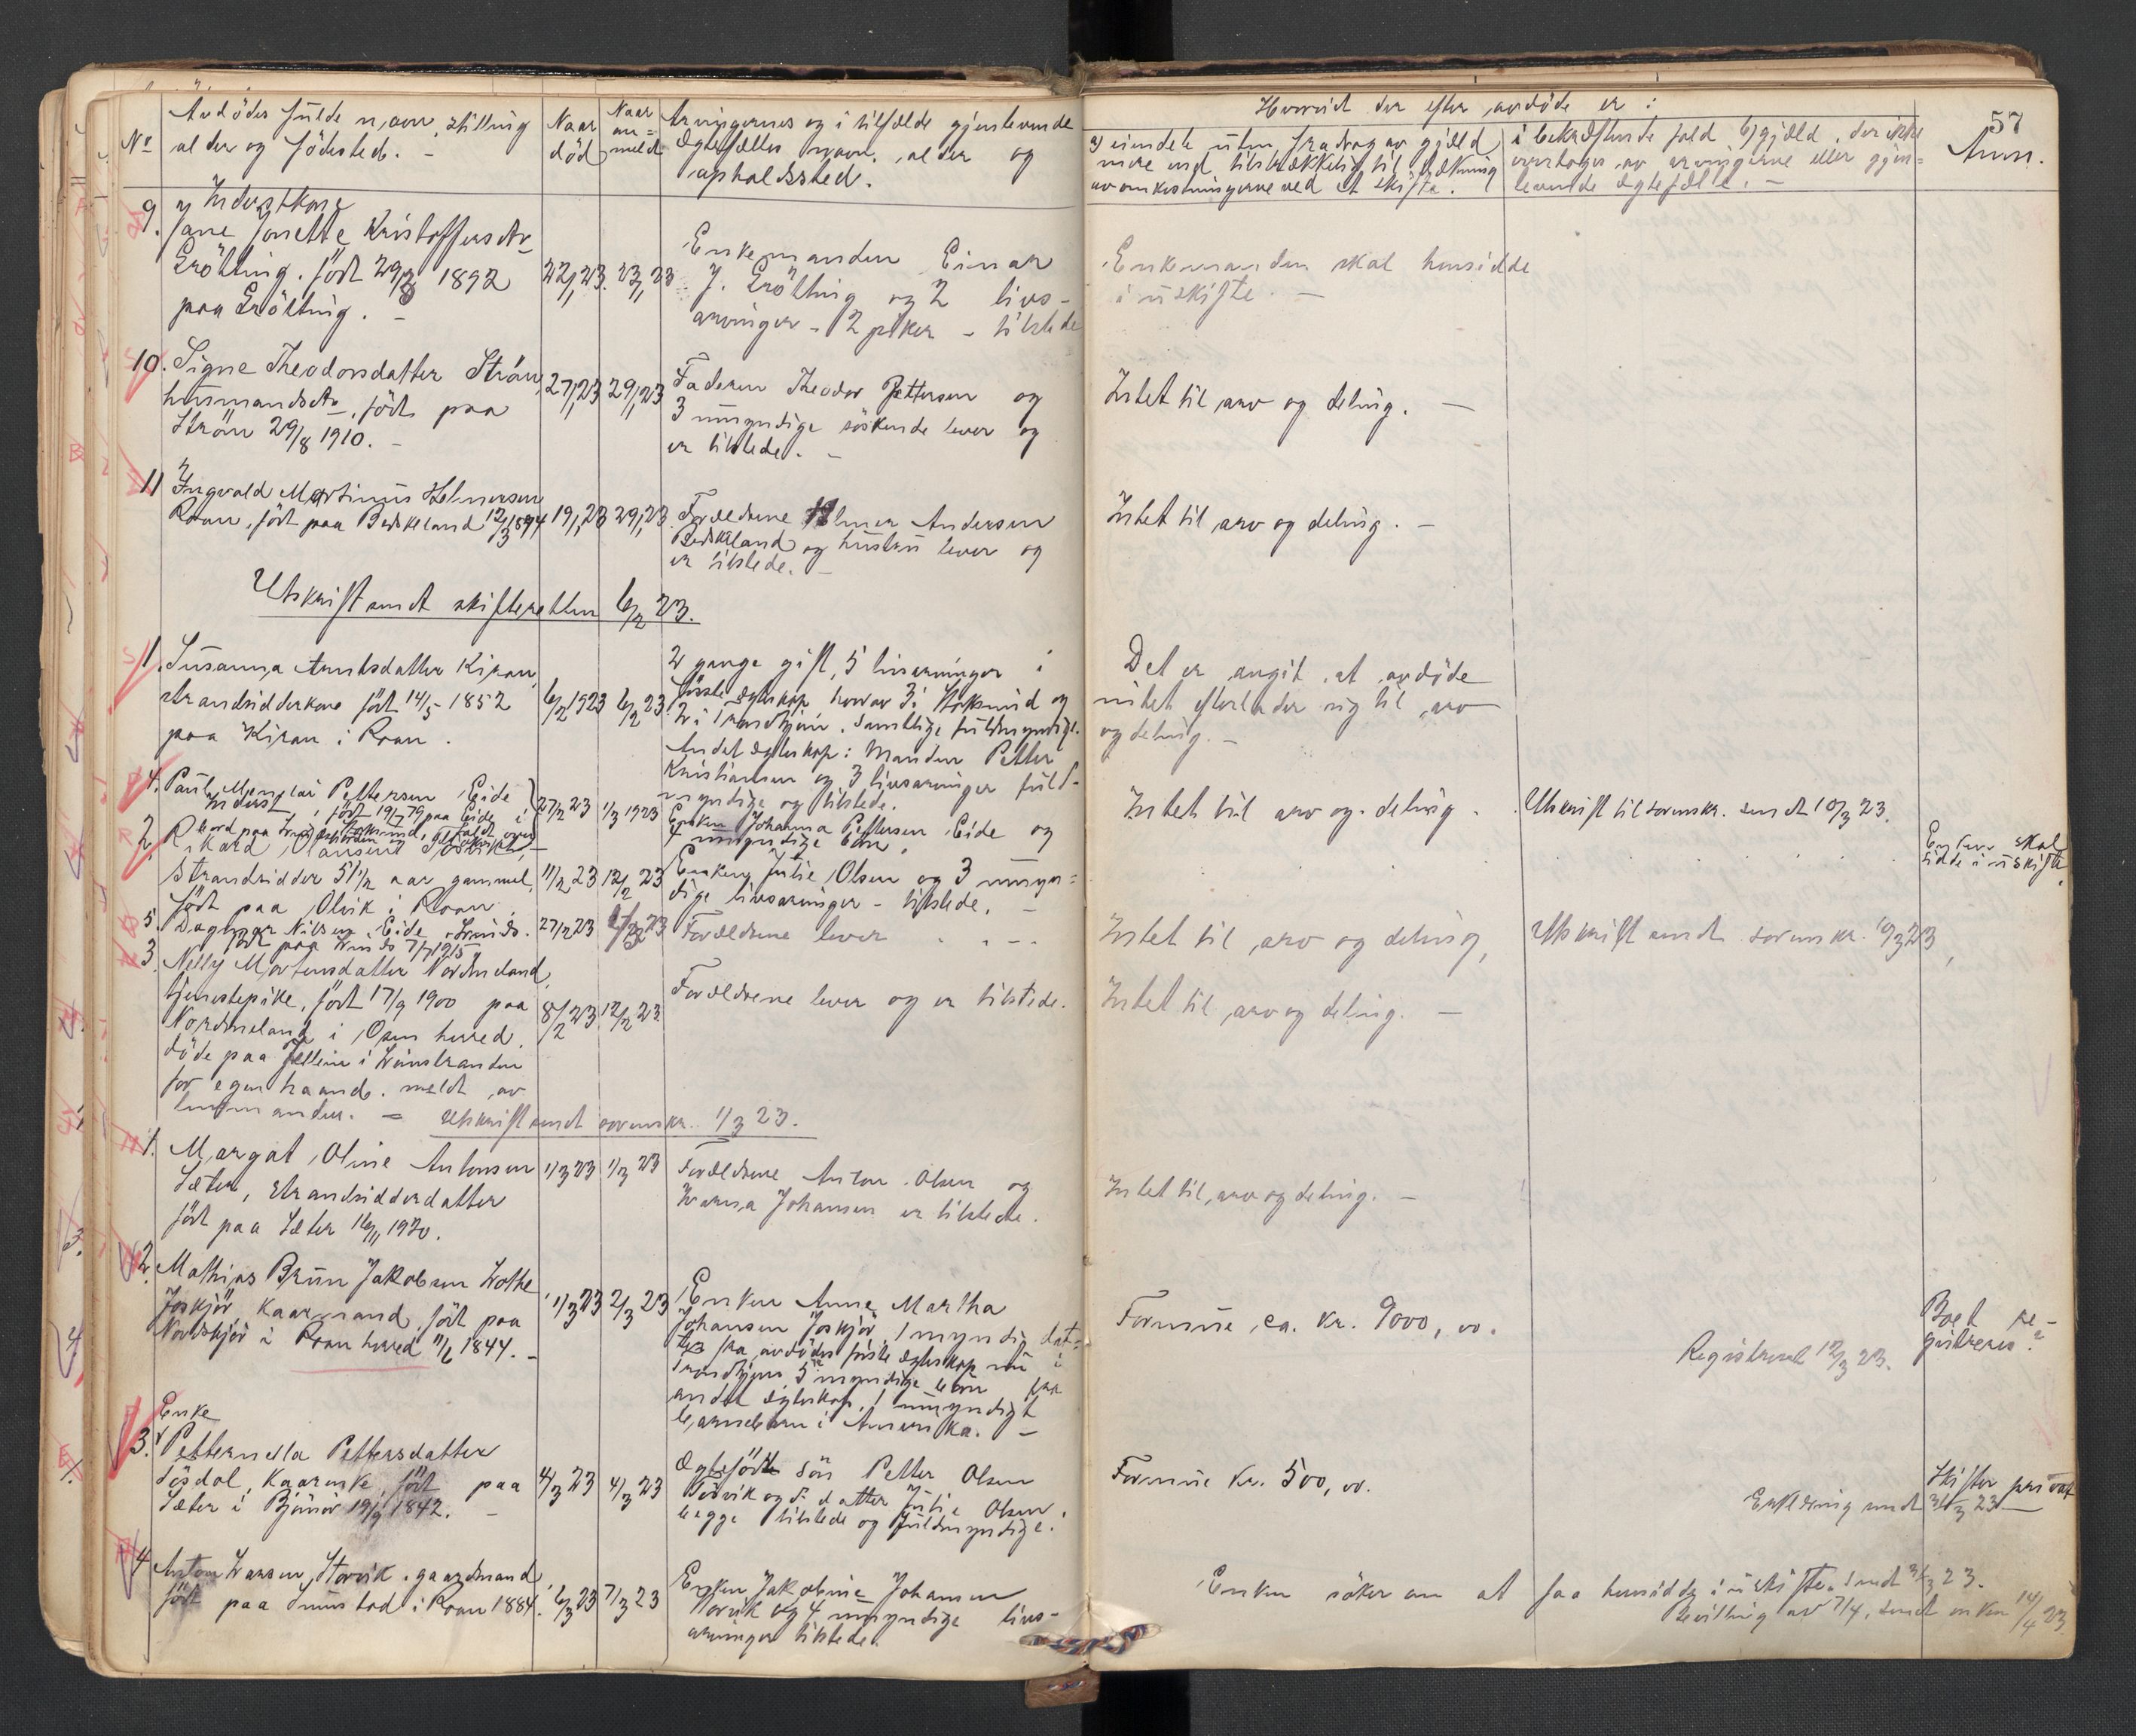 Avdödes fulde navn, stilling
No alder og födested. -
Naar död
Naar an= meldt
Arvingernes og i tilfælde gjenlevende
Ægtefælles navn, alder og
opholdssted.
Hvorvidt der efter avdöde er :
a) eiendele uten fradrag av gjæld
mere end tilstrækkelig til dækning
av omkostningerne ved et skifte.
i bekræftende fald b) gjæld, der ikke
overtages av arvingerne eller gjen=
levende ægtefælle. -
57
Anm.
9. Inderstkone
Jonette Kristoffersdtr
født 29/3 1892
paa
22/1 23. 23/1 23
Enkemanden Einar
J. og 2 livs-
arvinger - 2 piker - tilstede
Enkemanden skal hensidde
i uskifte. -
10. Signe Theodorsdatter Strøm,
husmandsdtr, födt paa
Strøm 29/8 1910. -
27/1 23 29/1 23
Faderen Theodor Pettersen og
3 umyndige söskende lever og
er tilstede. -
Intet til arv og deling. -
11 Ingvald Martinus Helmersen
Roan, födt paa Beskeland 12/3 1894
19/1 23 29/1 23
Forældrene Helmer Andersen
Beskeland og hustru lever og
er tilstede. -
Intet til arv og deling. -
Utskrift sendt skifteretten 6/2 23.
1. Susanna Arntsdatter Kiran,
strandsidderkone födt 14/5 1852
paa Kiran i Roan.
6/2 1923 6/2 23
2 gange gift, 5 livsarvinger i
förste ægteskap, hvorav 3 i Stoksund og
2 i Trondhjem. Samtlige fuldmyndige.
Andet ægteskap: Manden Petter
Kristiansen og 3 livsarvinger fuld-
myndige og tilstede.
Det er angit at avdöde
intet efterlader sig til arv
og deling. -
4. Paul Pettersen Eide
inderst, födt 19/ 79 paa Eide i
Stoksund,
27/2 23 1/3 1923
Enken Johanna Pettersen Eide og
4 umyndige barn.
Intet til arv og deling.
Utskrift til sorenskr. sendt 10/3 23.
2. Rikard Olausen
Strandsidder 51 1/2 aar gammel,
födt paa Olvik i Roan.
11/2 23 12/2 23
Enken Julie Olsen og 3 umyn=
dige livsarvinger - tilstede. -
Enken skal
sidde i uskifte.
5. Dagmar Nilsen Eide
födt paa 7/7 1915
27/2 23
Forældrene lever
Intet til arv og deling,
Utskrift sendt sorenskr. 10/3 23,
3. Nelly Mortensdatter Nordmeland,
tjenestepike, födt 17/9 1900 paa
Nordmeland i Osen herred.
döde paa i
for egen haand. meldt av
lensmanden. -
8/2 23 12/2 23
Forældrene lever og er tilstede.
Intet til arv og deling. -
Utskrift sendt sorenskr. 1/3 23.
1. Margat Oline Antonsen
Sæter, strandsidderdatter
födt paa Sæter 16/11 1920.
1/3 23 1/3 23
Forældrene Anton Olsen og
Johansen er tilstede.
Intet til arv og deling. -
2. Mathias Brun Jakobsen
kaarmand, födt paa
Nordskjör i Roan herred 11/6 1844. -
1/3 23 2/3 23
Enken Anna Martha
Johansen 1 myndig dat=
ter fra avdödes förste ægteskap nu i
Trondhjem, 5 myndige barn fra
andet ægteskap, 1 umyndigt
barnebarn i Amerika. -
Formue ca. kr. 9000,00.
Registreret 12/3 23.
Boet re-
gistreres.
Enke
3. Petternella Pettersdatter
kaarenke, födt paa
Sæter i Björnör 19/9 1842. -
4/3 23 4/3 23
Ægtefödte sön Petter Olsen
og d. datter Julie Olsen.
begge tilstede og fuldmyndige.
Formue kr. 500,00.
Erklæring sendt 23
Skifter privat
4 Anton Larsen Storvik, gaardmand
födt paa Sumstad i Roan 1884.
6/3 23 7/3 23
Enken Jakobine Johansen
Storvik og 4 umyndige livs-
arvinger tilstede.
Enken söker om at faa hensidde i uskifte, sendt 23.
bevilling av 7/4, sendt enken 14/4 23.